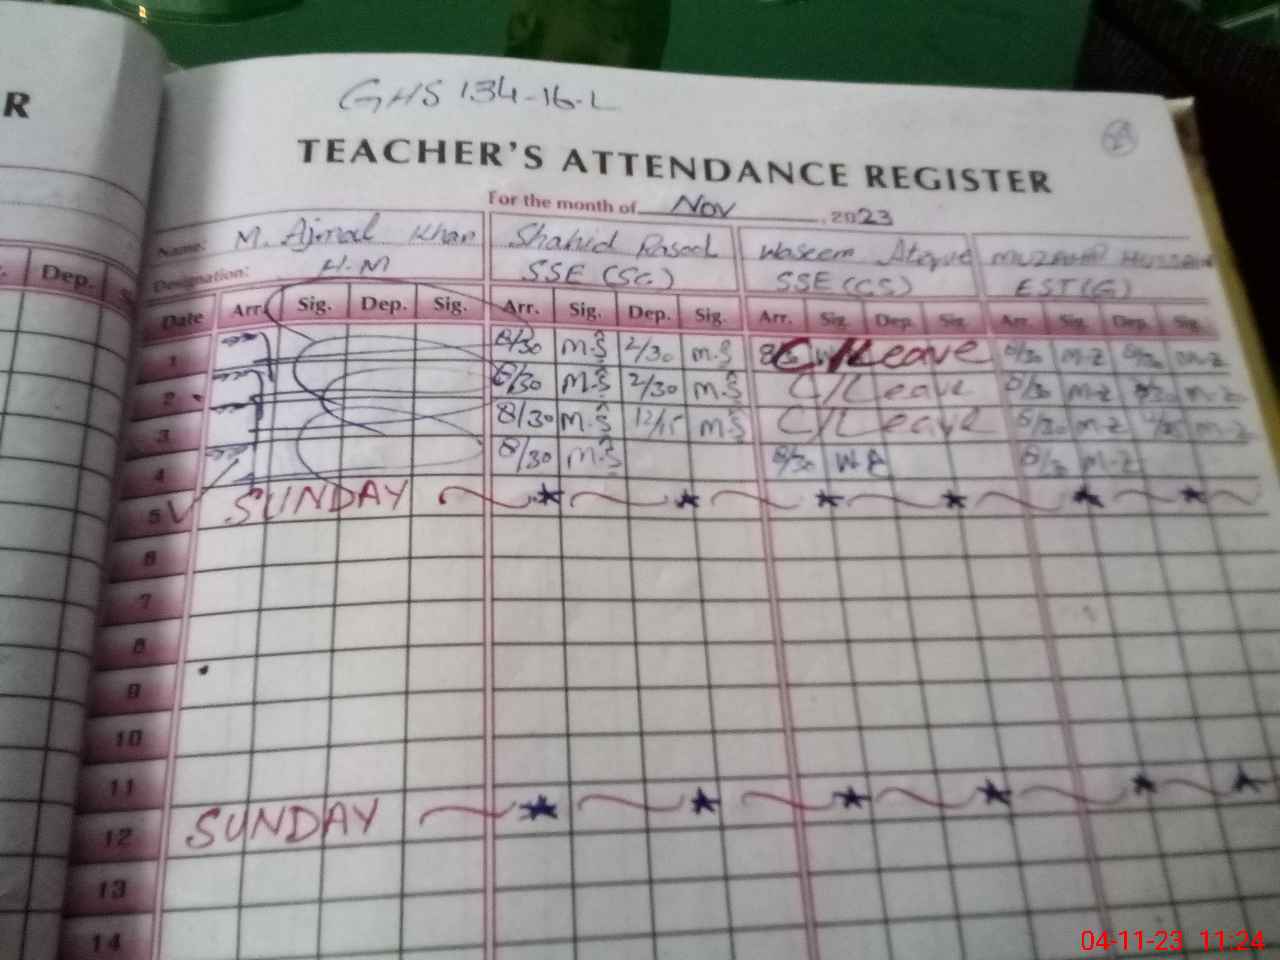 GHS 134-16-L
R
TEACHER'S ATTENDANCE REGISTER
For the month of Nov, 2023
Name: M. Ajmal Khan Shahid Rasool Waseem Ateque Muzaffar Hussain
Designation: H.M SSE (SC) SSE (CS) EST (G)
Dep.
Date Arr. Sig. Dep. Sig. Arr. Sig. Dep. Sig. Arr. Sig. Dep. Sig. Arr. Sig. Dep. Sig.
1 8/30 M.S 2/30 M.S C/Leave 8/30 M-Z M-Z
2 8/30 M.S 2/30 M.S C/Leave 8/30 M-Z M-Z
3 8/30 M.S 12/15 M.S C/Leave 8/30 M-Z M-Z
4 8/30 M.S 8/30 WA 8/30 M-Z
5 SUNDAY
6
7
8
9
10
11
12 SUNDAY
13
14
04-11-23 11:24